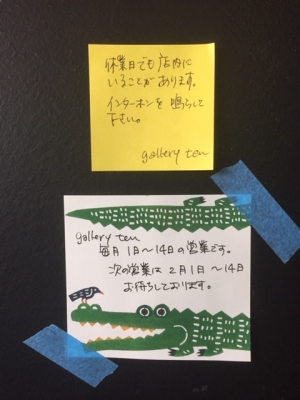 休業日でも店内に
いることがあります。
インターホンを鳴らして
下さい。
gallery ten
gallery ten
毎月1日〜14日の営業です。
次の営業は2月1日〜14日
お待ちしております。